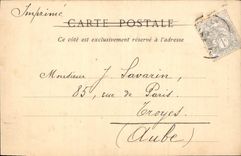 Imprimé
CARTE POSTALE
Ce côté est exclusivement réservé à l'adresse
Monsieur J. Savarin,
85, rue de Paris.
Troyes
(Aube)